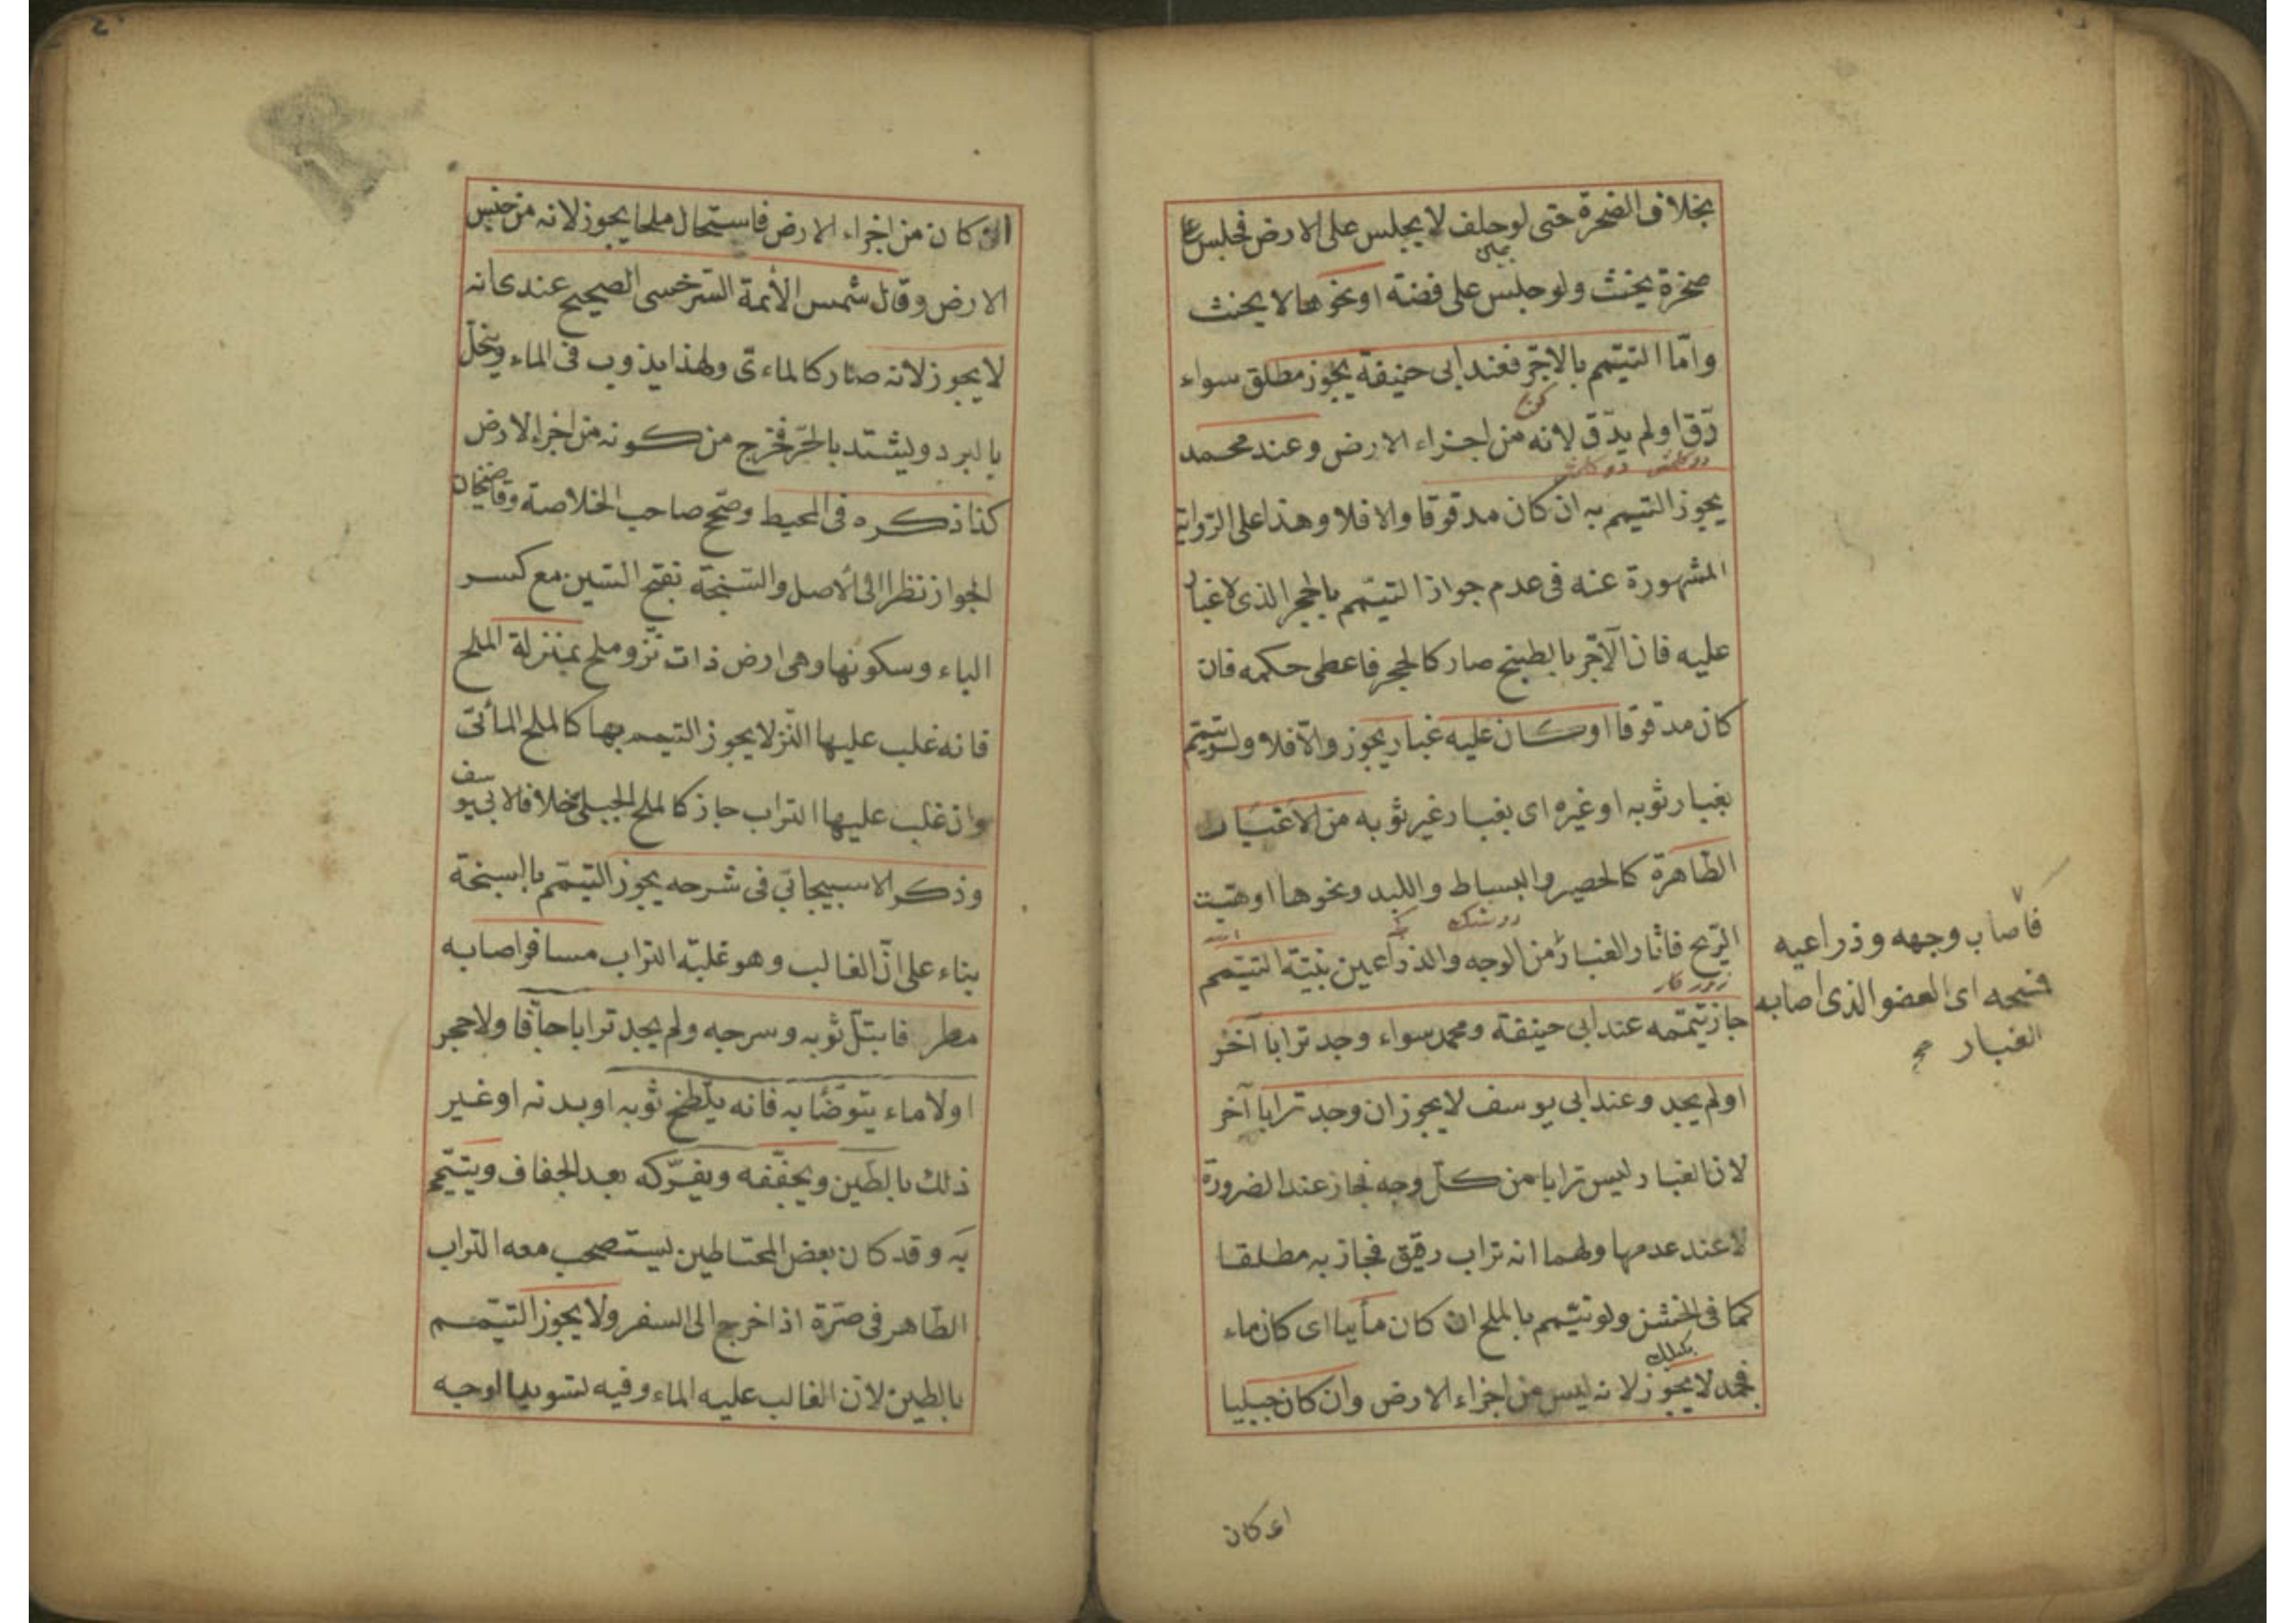 بخلاف الصخرة حتى لو حلف لا يجلس على الارض فجلس على
صخرة يحنث ولو جلس على فضة او نحوها لا يحنث
وامّا التيمّم بالاجرّ فعند ابى حنيفة يجوز مطلق سواء
دقّ او لم يدّق لانه من اجزاء الارض وعند محمد
يجوز التيمم به ان كان مدقوقا والا فلا وهذا على الرّواية
المشهورة عنه فى عدم جواز التيمّم بالحجر الذى لا غبار
عليه فان الآجّر بالطبخ صار كالحجر فاعطى حكمه فان
كان مدقوقا او كان عليه غبار يجوز والّا فلا ولو تيمّم
بغبار ثوبه او غيره اى بغبار غير ثوبه من الاعيان
الطّاهرة كالحصير والبساط واللبد ونحوها او هبّت
الرّيح فاثار الغبار من الوجه والذراعين بنيّة التيمّم
جاز تيمّمه عند ابى حنيفة ومحمد سواء وجد ترابا آخر
او لم يجد وعند ابى يوسف لا يجوز ان وجد ترابا آخر
لان الغبار ليس ترابا من كلّ وجه فجاز عند الضرورة
لا عند عدمها ولهما انه تراب رقيق فجاز به مطلقا
كما فى الخشن ولو تيمّم بالملح ان كان مأييا اى كان ماء
فجمد لا يجوز لانه ليس من اجزاء الارض وان كان جبليا
فأصاب وجهه وذراعيه
فمسحه اى العضو الذى اصابه
الغبار صح
اى كان
اى كان من اجزاء الارض فاستحال ملحا يجوز لانه من جنس
الارض وقال شمس الأئمة السّرخسى الصحيح عندى انه
لا يجوز لانه صار كالماءىّ ولهذا يذوب فى الماء وينحلّ
بالبرد ويشتد بالحرّ فخرج من كونه من اجزاء الارض
كذا ذكره فى المحيط وصّحح صاحب الخلاصة وقاضيخان
الجواز نظرا الى الأصل والسّبخة بفتح السّين مع كسر
الباء وسكونها وهى ارض ذات نزّ وملح بمنزلة الملح
فانه غلب عليها النّز لا يجوز التيمم بها كالملح المأئىّ
وان غلب عليها التراب جاز كالملح الجبلى خلافا لابى يوسف
وذكر الاسبيجابّى فى شرحه يجوز التيمّم بالسبخة
بناء على انّ الغالب وهو غلبة التراب مسافر اصابه
مطر فابتلّ ثوبه وسرجه ولم يجد ترابا جاّفا ولا حجر
اولا ماء يتوضّأ به فانه يلّطخ ثوبه او بدنه او غير
ذلك بالطّين ويجفّفه ويفرّكه بعد الجفاف ويتيمّم
به وقد كان بعض المحتاطين يستصحب معه التراب
الطّاهر فى صرّة اذا خرج الى السفر ولا يجوز التيمّم
بالطين لانّ الغالب عليه الماء وفيه تسويد الوجه